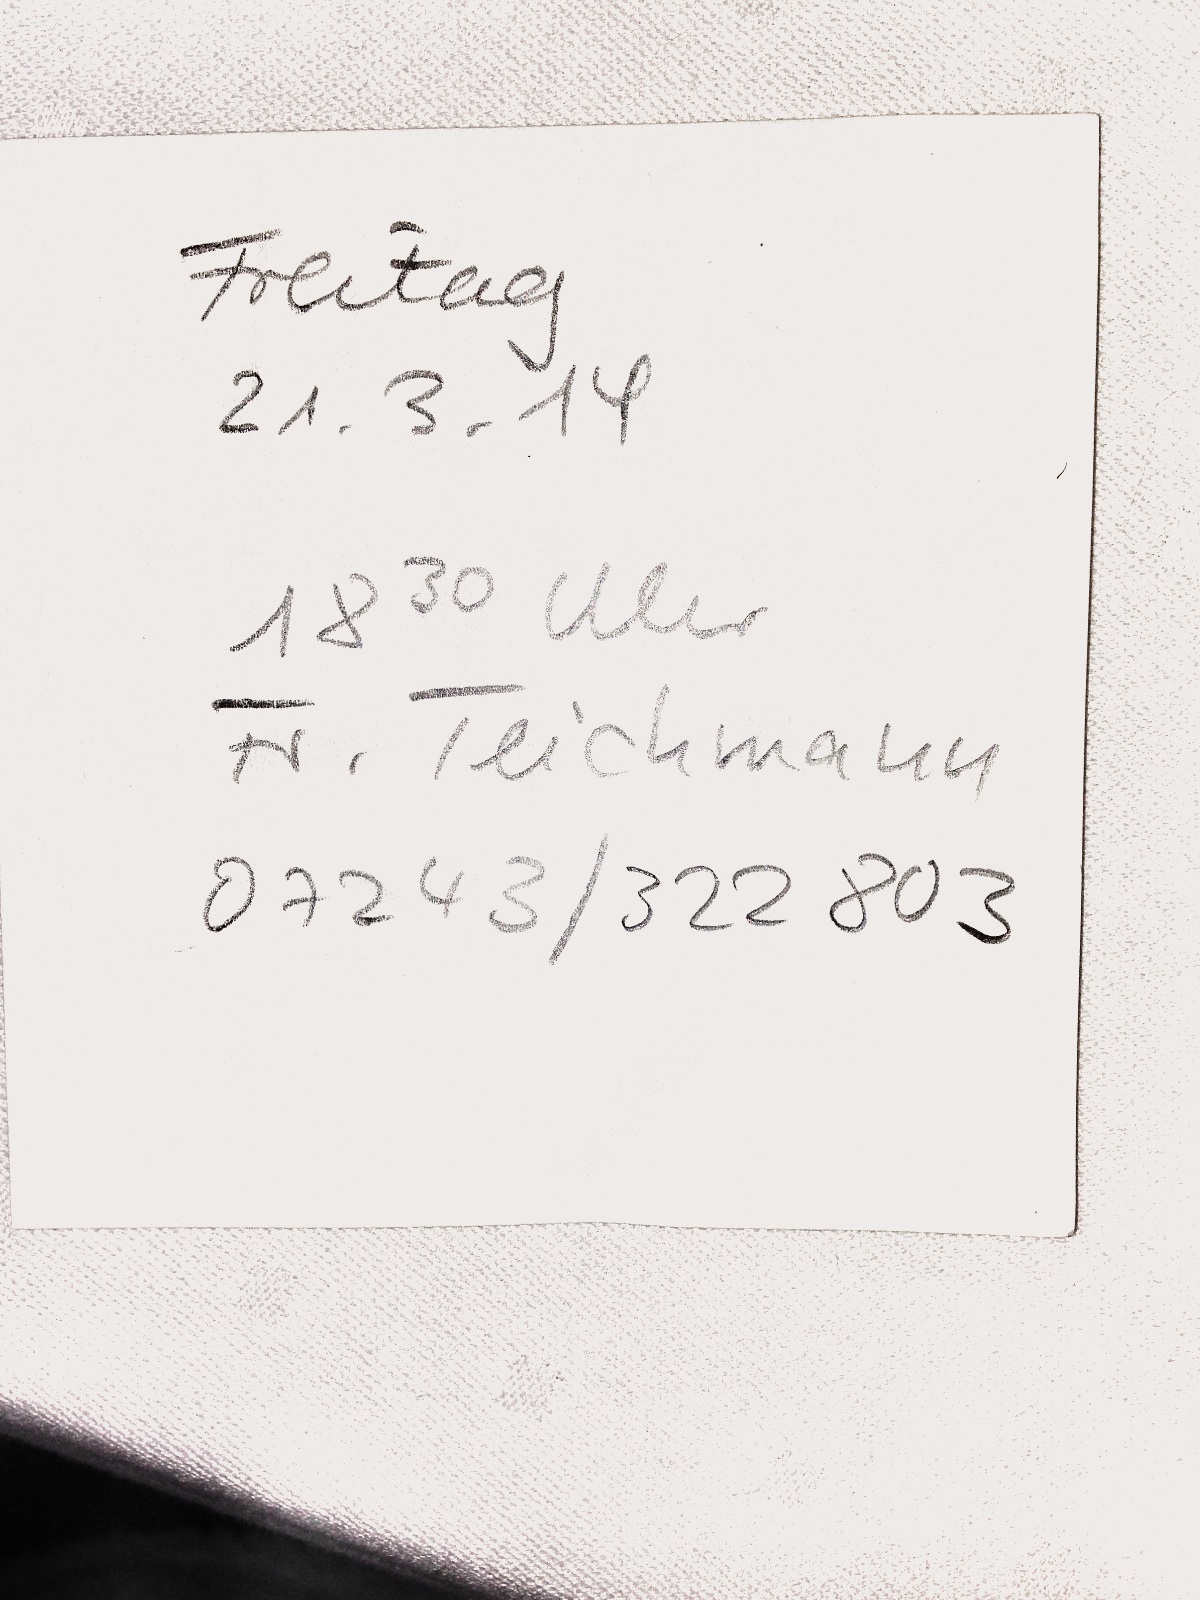 Freitag
21.3.14
18 30 Uhr
Fr. Teichmann
07243/322 803